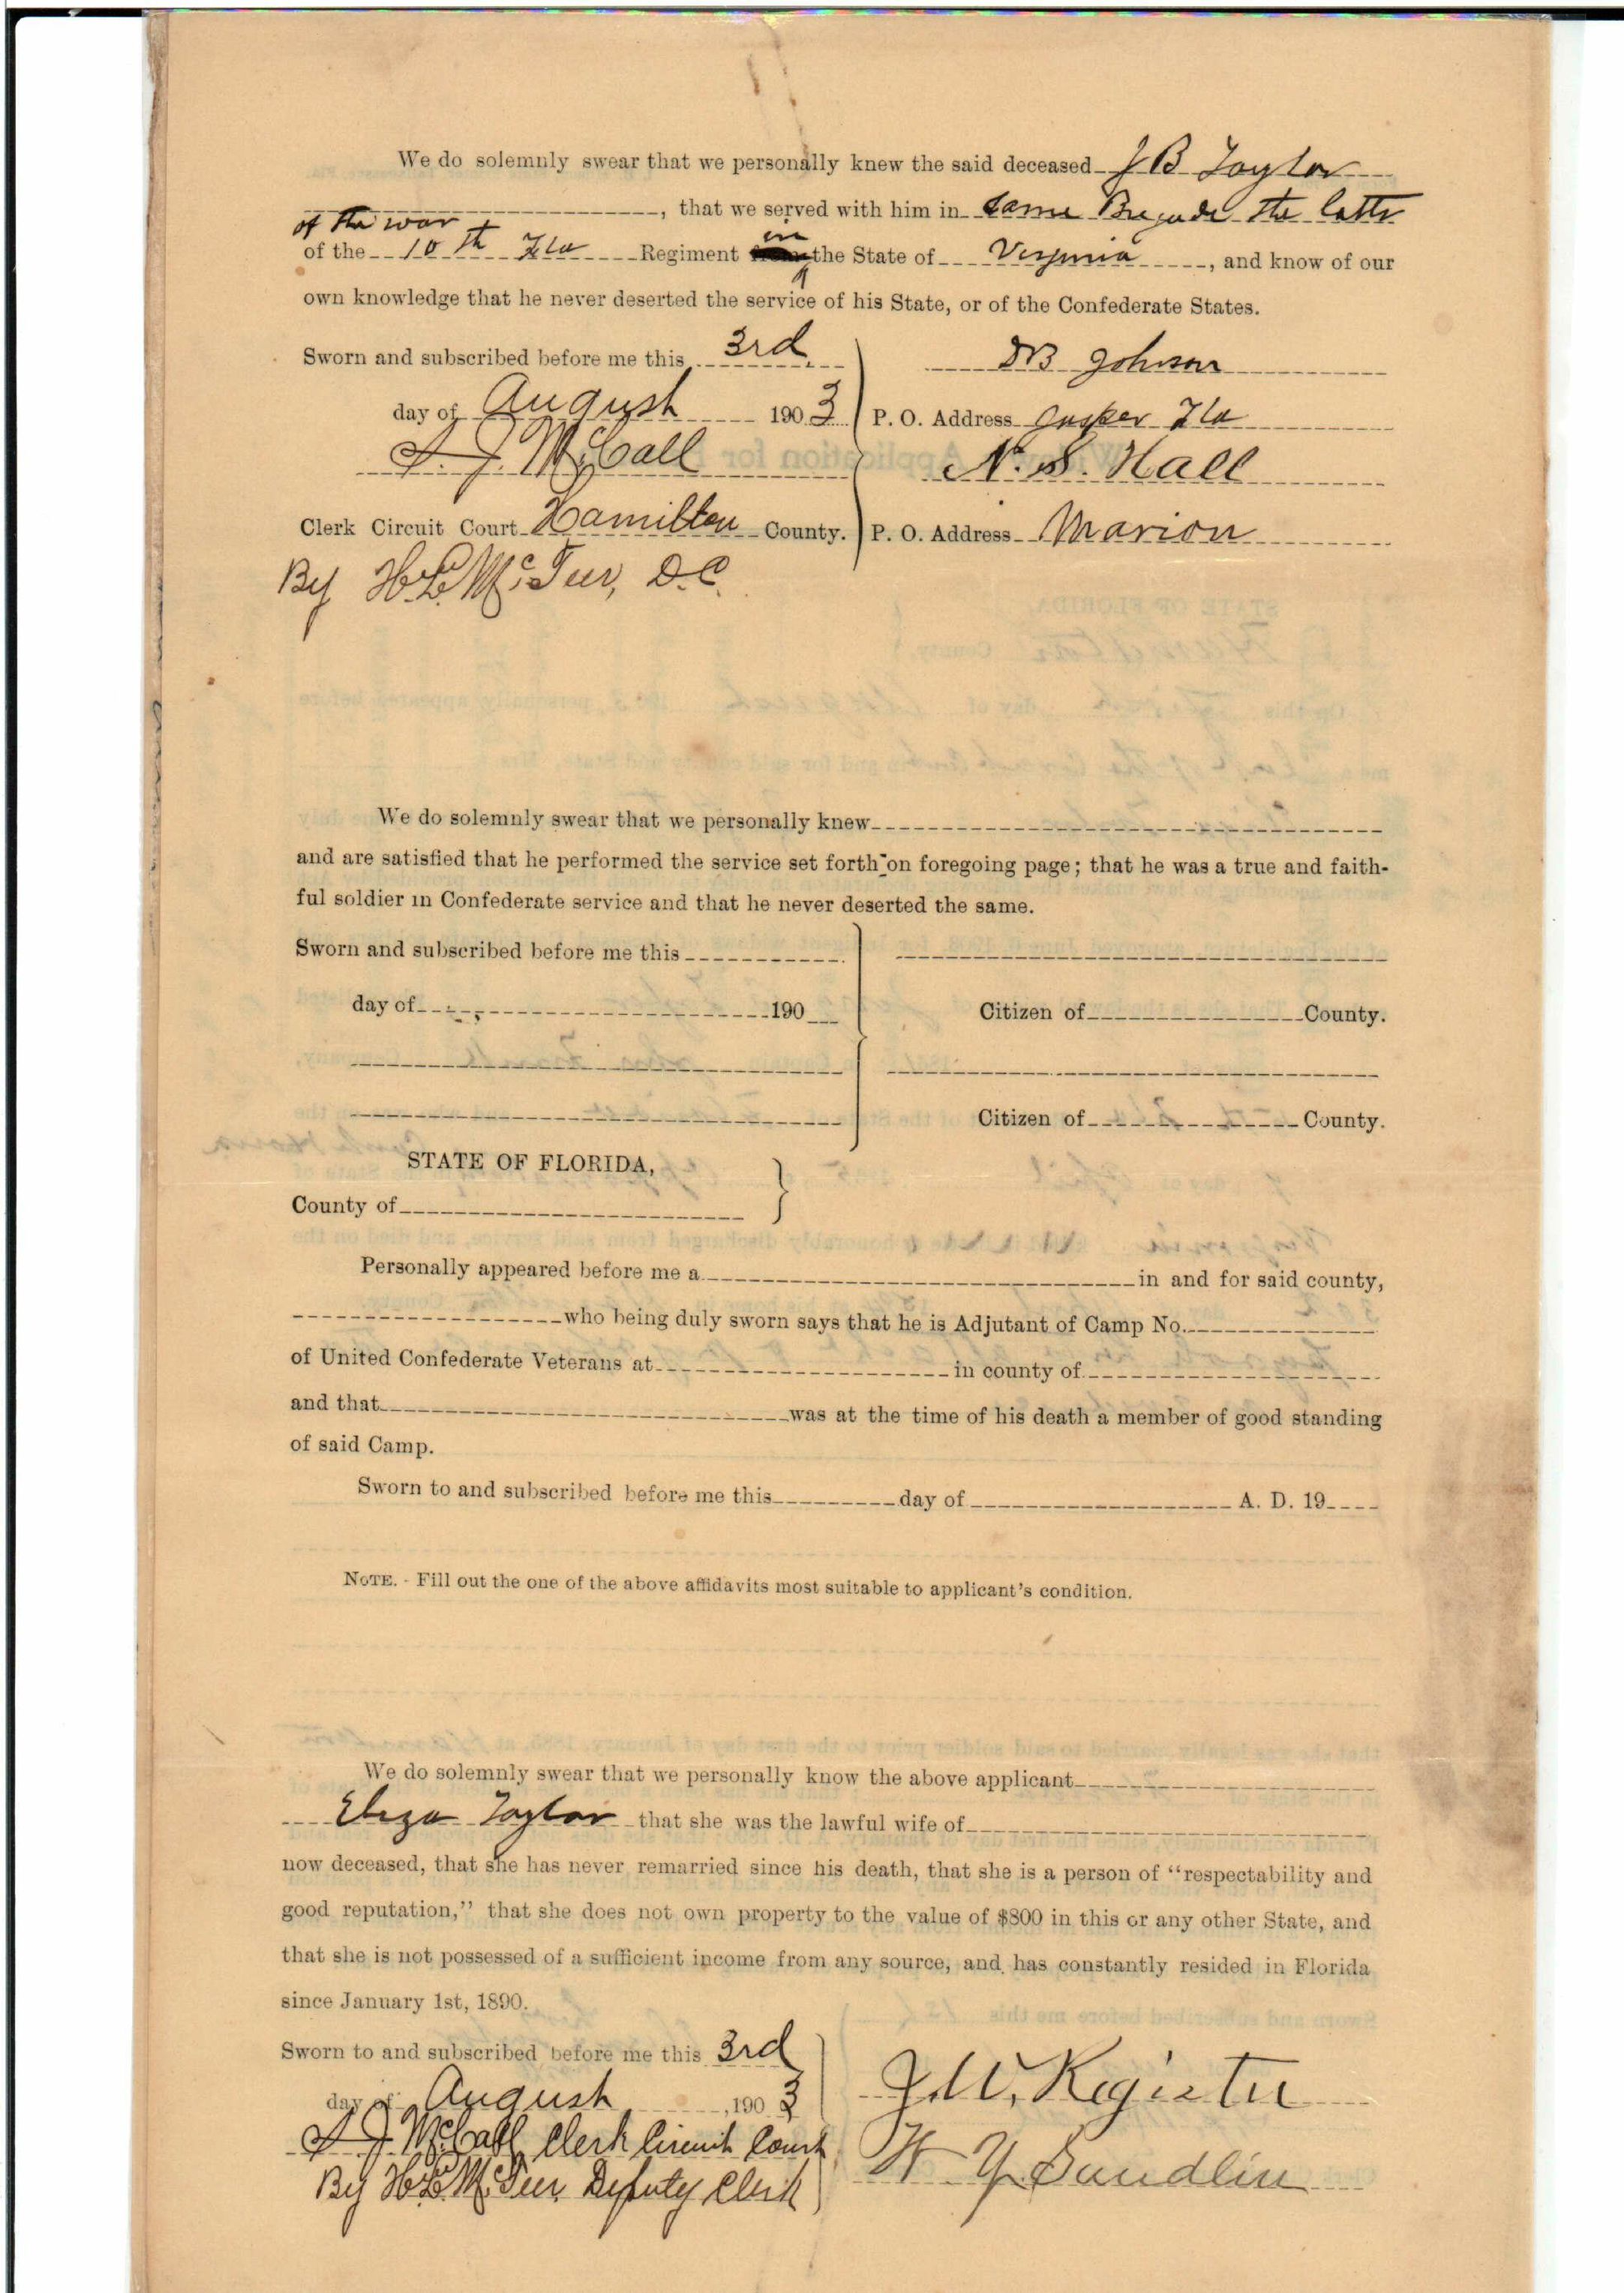 We do solemnly swear that we personally knew the said deceased J B Taylor
, that we served with him in same Brigade the latter
of the war
of the 10th Fla Regiment in the State of Virginia, and know of our
own knowledge that he never deserted the service of his State, or of the Confederate States.
Sworn and subscribed before me this 3rd
day of August 1903
Clerk Circuit Court Hamilton County.
By H L McTeer, D.C.
Johnson
P. O. Address Jasper Fla
N. S. Hall
P. O. Address Marion
We do solemnly swear that we personally knew
and are satisfied that he performed the service set forth on foregoing page; that he was a true and faith-
ful soldier in Confederate service and that he never deserted the same.
Sworn and subscribed before me this
day of 190
Citizen of County.
Citizen of County.
STATE OF FLORIDA,
County of
Personally appeared before me a in and for said county,
who being duly sworn says that he is Adjutant of Camp No.
of United Confederate Veterans at in county of
and that was at the time of his death a member of good standing
of said Camp.
Sworn to and subscribed before me this day of A. D. 19
NOTE. - Fill out the one of the above affidavits most suitable to applicant's condition.
We do solemnly swear that we personally know the above applicant
Eliza Taylor that she was the lawful wife of
now deceased, that she has never remarried since his death, that she is a person of "respectability and
good reputation," that she does not own property to the value of $800 in this or any other State, and
that she is not possessed of a sufficient income from any source, and has constantly resided in Florida
since January 1st, 1890.
Sworn to and subscribed before me this 3rd
day of August, 1903
J. McCall Clerk Circuit Court
By H L McTeer, Deputy Clerk
J. W. Register
W Y Sandlin